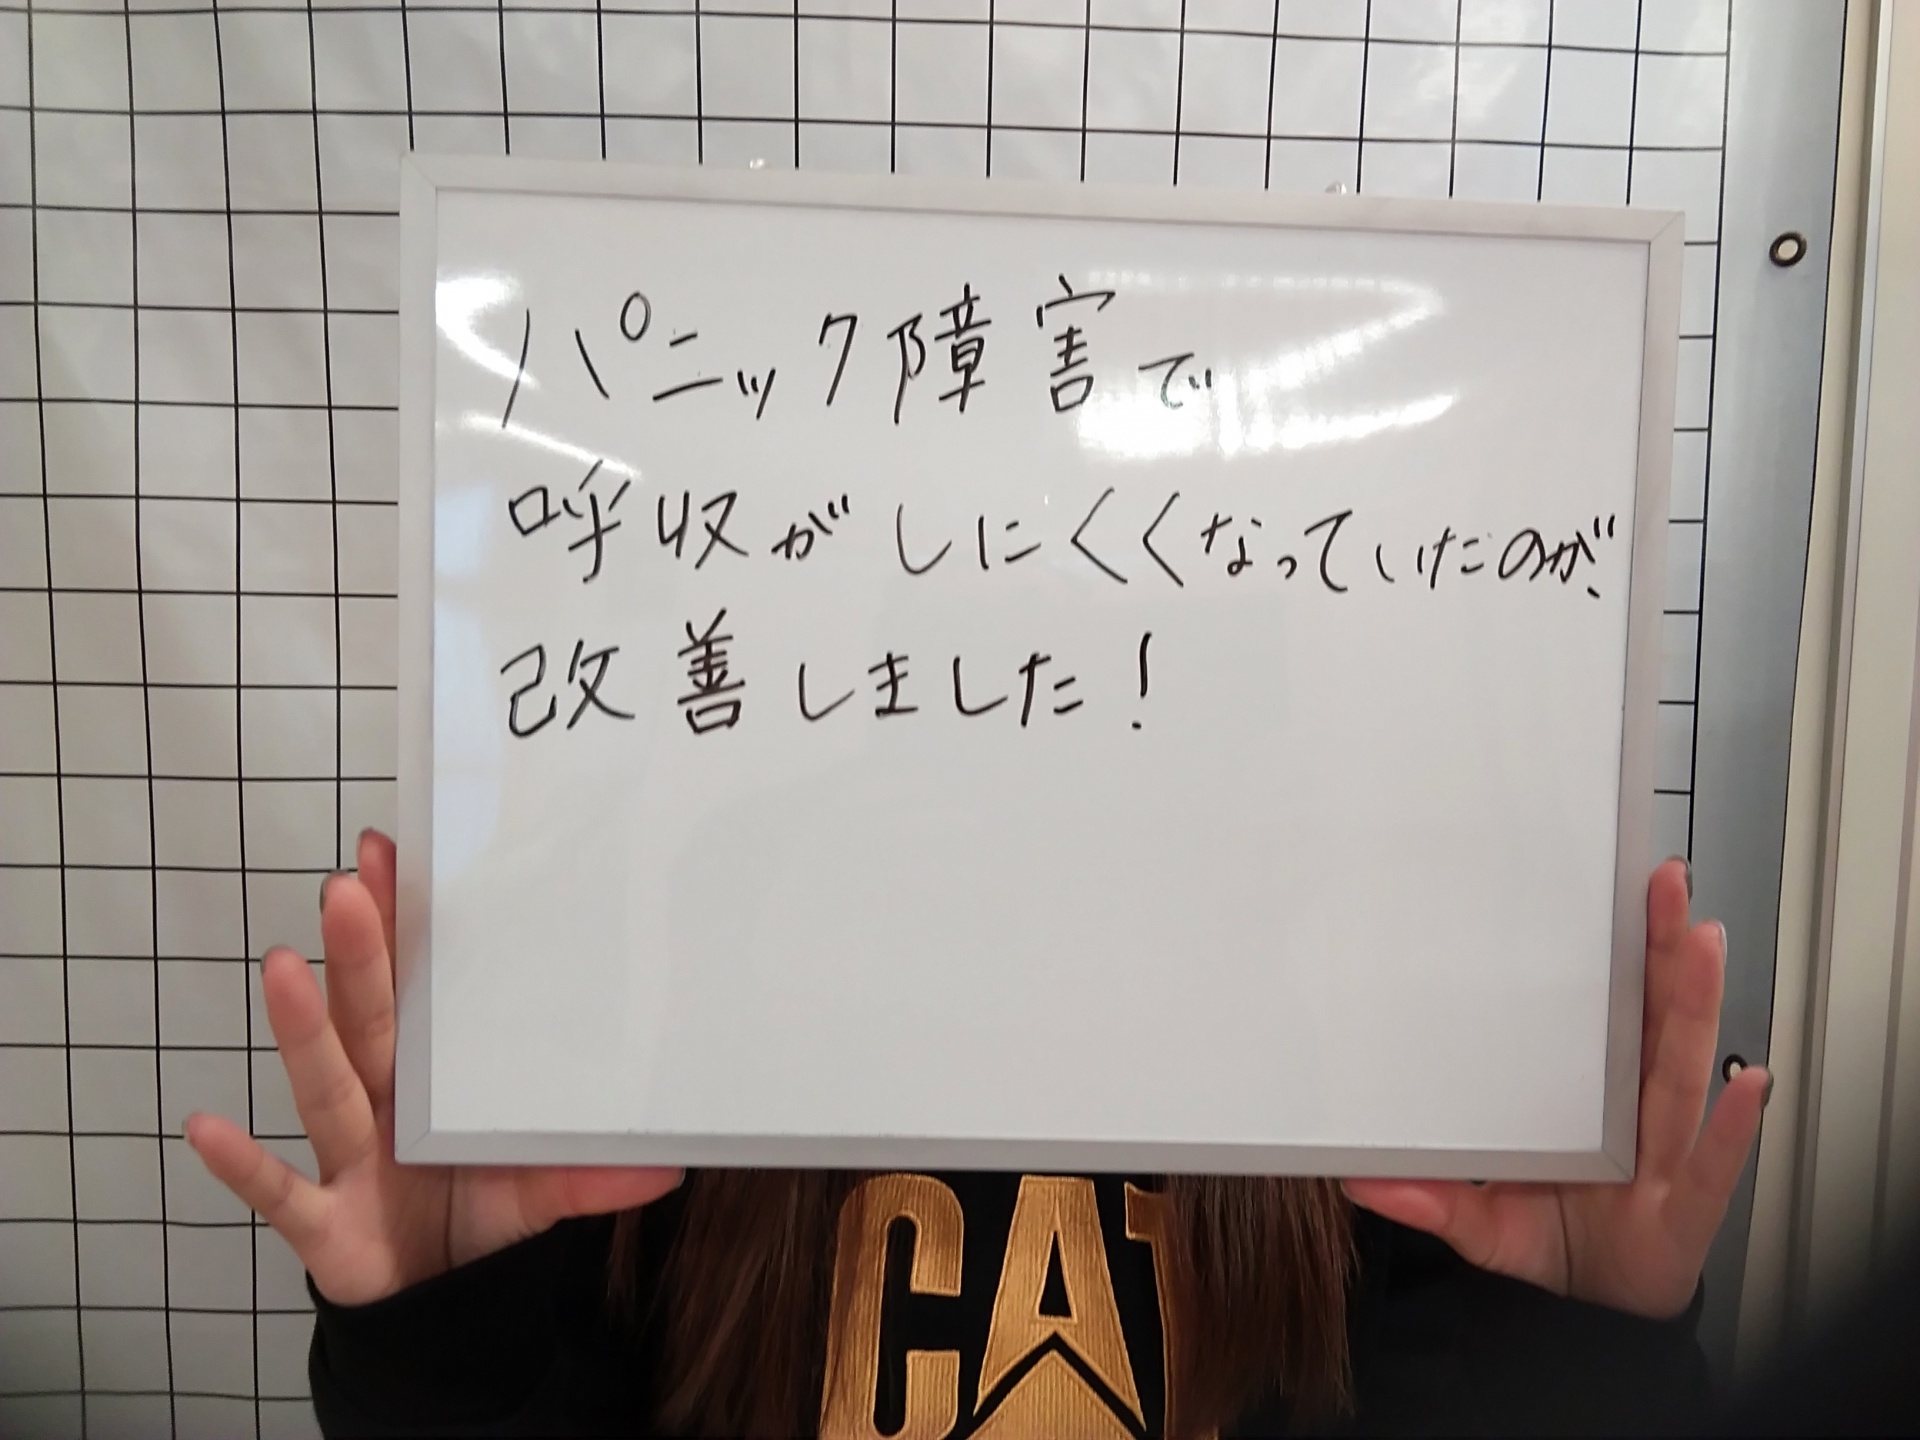 パニック障害で
呼収がしにくくなっていたのが、
改善しました!
CAT